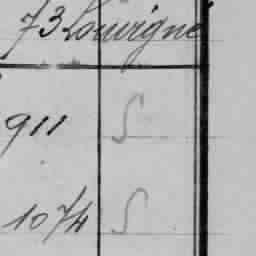 73 Louvigné
911 S
1074 S